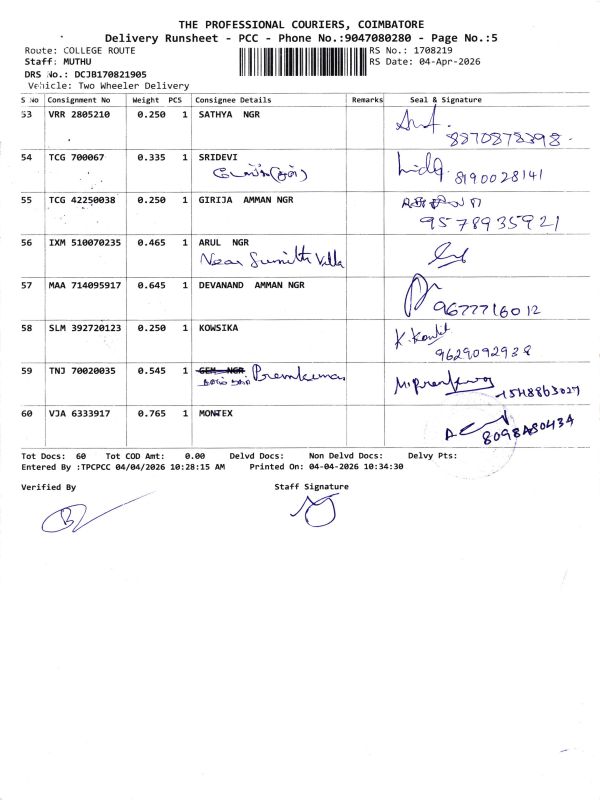 THE PROFESSIONAL COURIERS, COIMBATORE
Delivery Runsheet - PCC - Phone No.:9047080280 - Page No.:5
Route: COLLEGE ROUTE RS No.: 1708219
Staff: MUTHU RS Date: 04-Apr-2026
DRS No.: DCJB170821905
Vehicle: Two Wheeler Delivery
S No Consignment No Weight PCS Consignee Details Remarks Seal & Signature
53 VRR 2805210 0.250 1 SATHYA NGR
8870878398
54 TCG 700067 0.335 1 SRIDEVI
8190028141
55 TCG 42250038 0.250 1 GIRIJA AMMAN NGR
9578935921
56 IXM 510070235 0.465 1 ARUL NGR
Near Sumith Villa
57 MAA 714095917 0.645 1 DEVANAND AMMAN NGR
9677716012
58 SLM 392720123 0.250 1 KOWSIKA
9629092938
59 TNJ 70020035 0.545 1 GEM NGR Premkumar
60 VJA 6333917 0.765 1 MONTEX
Tot Docs: 60 Tot COD Amt: 0.00 Delvd Docs: Non Delvd Docs: Delvy Pts:
Entered By :TPCPCC 04/04/2026 10:28:15 AM Printed On: 04-04-2026 10:34:30
Verified By Staff Signature